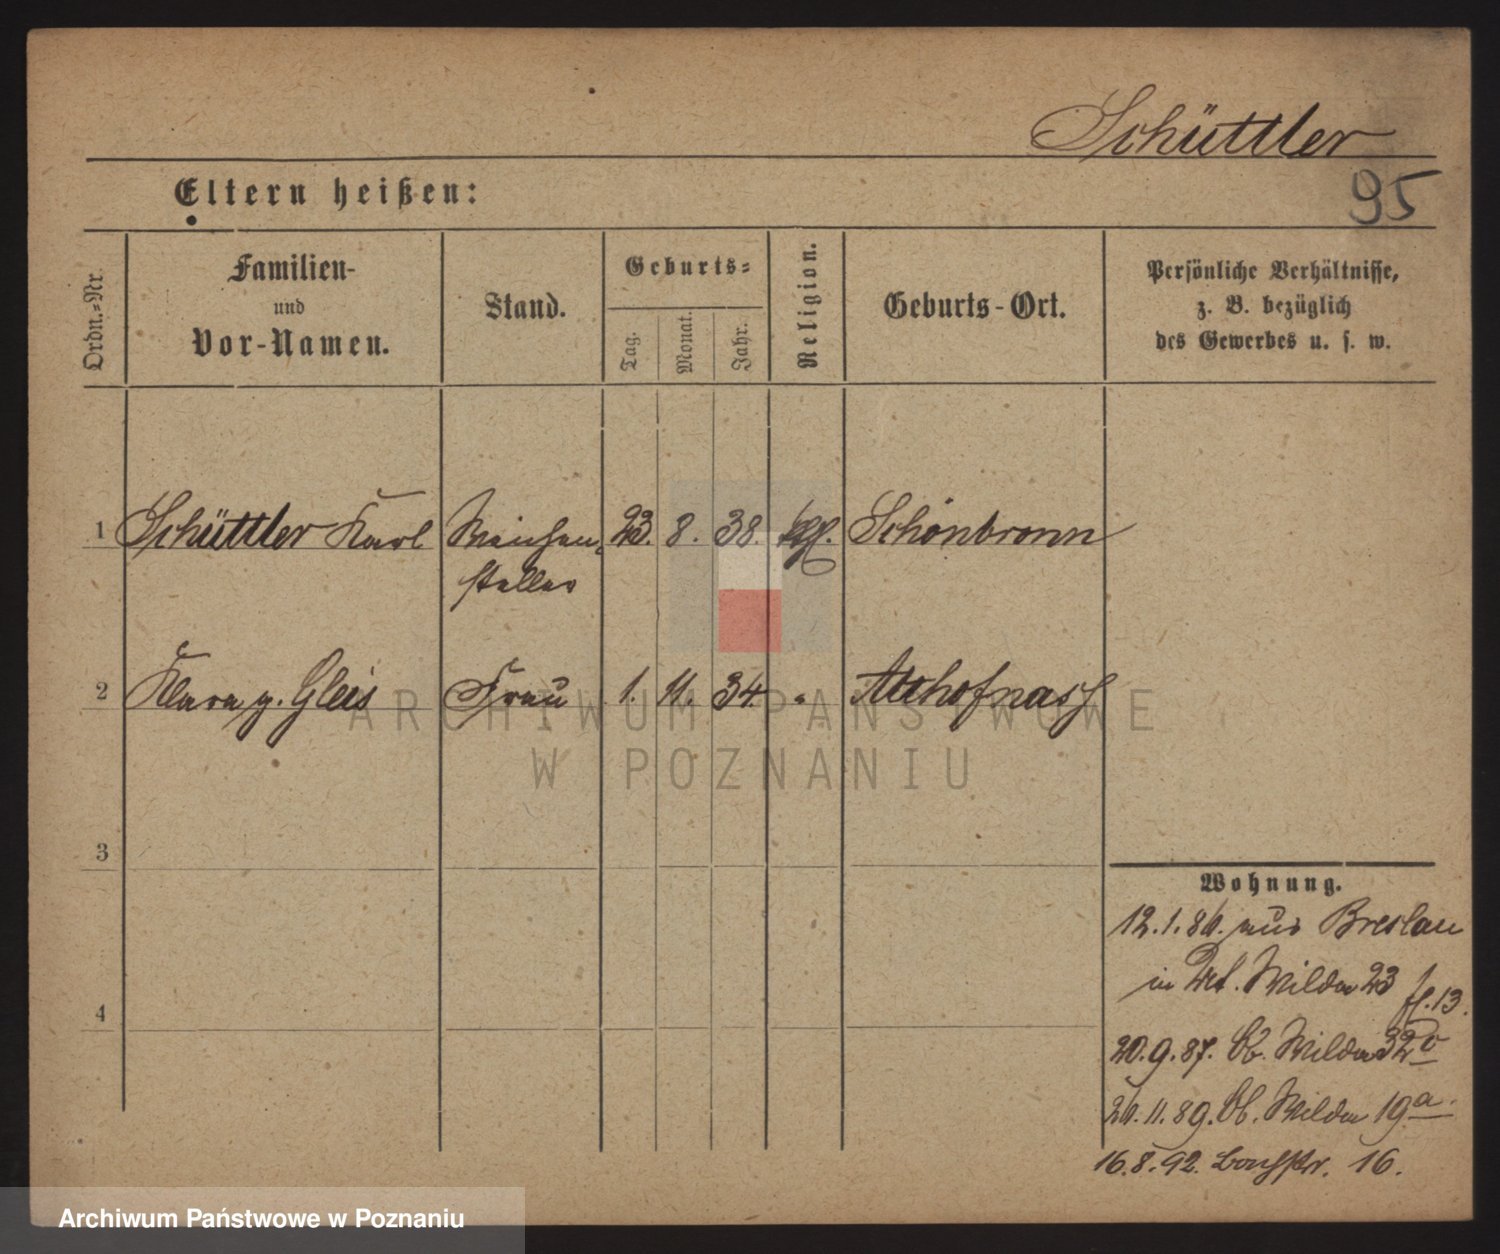 Schüttler
95
Eltern heißen:
Ordn.-Nr.
Familien-
und
Vor-Namen.
Stand.
Geburts-
Tag.
Monat.
Jahr.
Religion.
Geburts-Ort.
Persönliche Verhältnisse,
z. B. bezüglich
des Gewerbes u. s. w.
1 Schüttler Karl Weichen- 23. 8. 38. Schönbronn
steller
2 Klara g. Gleis Frau 1. 11. 34 " Althofnass
3
4
Wohnung.
12.1.86. aus Breslau
in Wilda 23
fl. 13.
20.9.87. Ob. Wilda 32
26.11.89. Ob. Wilda 19a.
16.8.92. 16.
ARCHIWUM PAŃSTWOWE
W POZNANIU
Archiwum Państwowe w Poznaniu